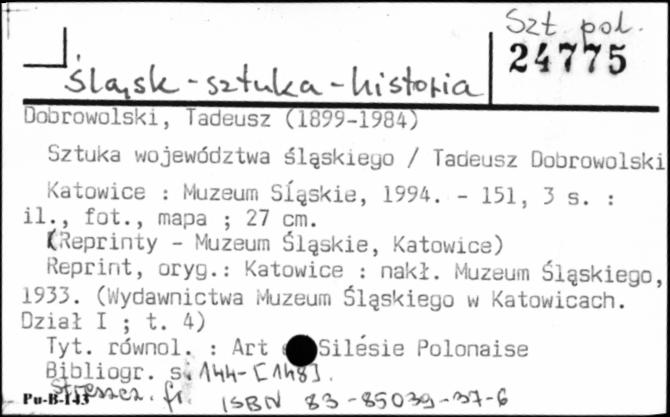 Szt pol.
24775
śląsk - sztuka - historia
Dobrowolski, Tadeusz (1899-1984)
Sztuka województwa śląskiego / Tadeusz Dobrowolski
Katowice : Muzeum Śląskie, 1994. - 151, 3 s. :
il., fot., mapa ; 27 cm.
(Reprinty - Muzeum Śląskie, Katowice)
Reprint, oryg.: Katowice : nakł. Muzeum Śląskiego,
1933. (Wydawnictwa Muzeum Śląskiego w Katowicach.
Dział I ; t. 4)
Tyt. równol. : Art Silésie Polonaise
Bibliogr. s. 144-[148].
Streszcz. fr.
Pu-B-143 ISBN 83-85039-37-6